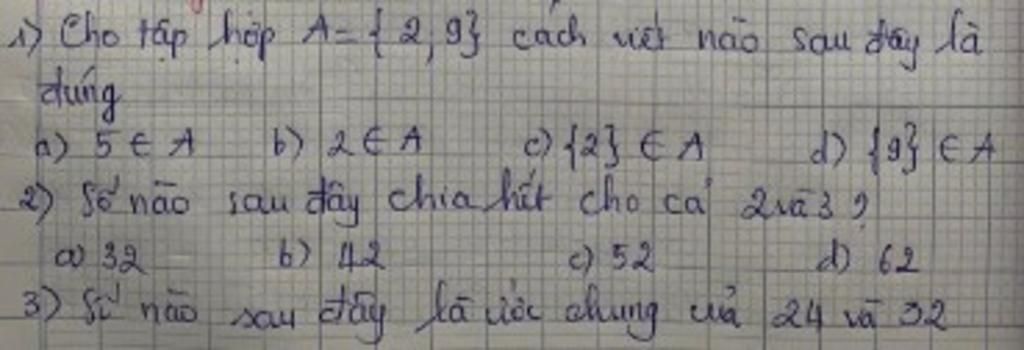 1) Cho tập hợp A = {2, 9} cách viết nào sau đây là
đúng
a) 5 ∈ A b) 2 ∈ A c) {2} ∈ A d) {9} ∈ A
2) Số nào sau đây chia hết cho cả 2 và 3 ?
a) 32 b) 42 c) 52 d) 62
3) Số nào sau đây là ước chung của 24 và 32